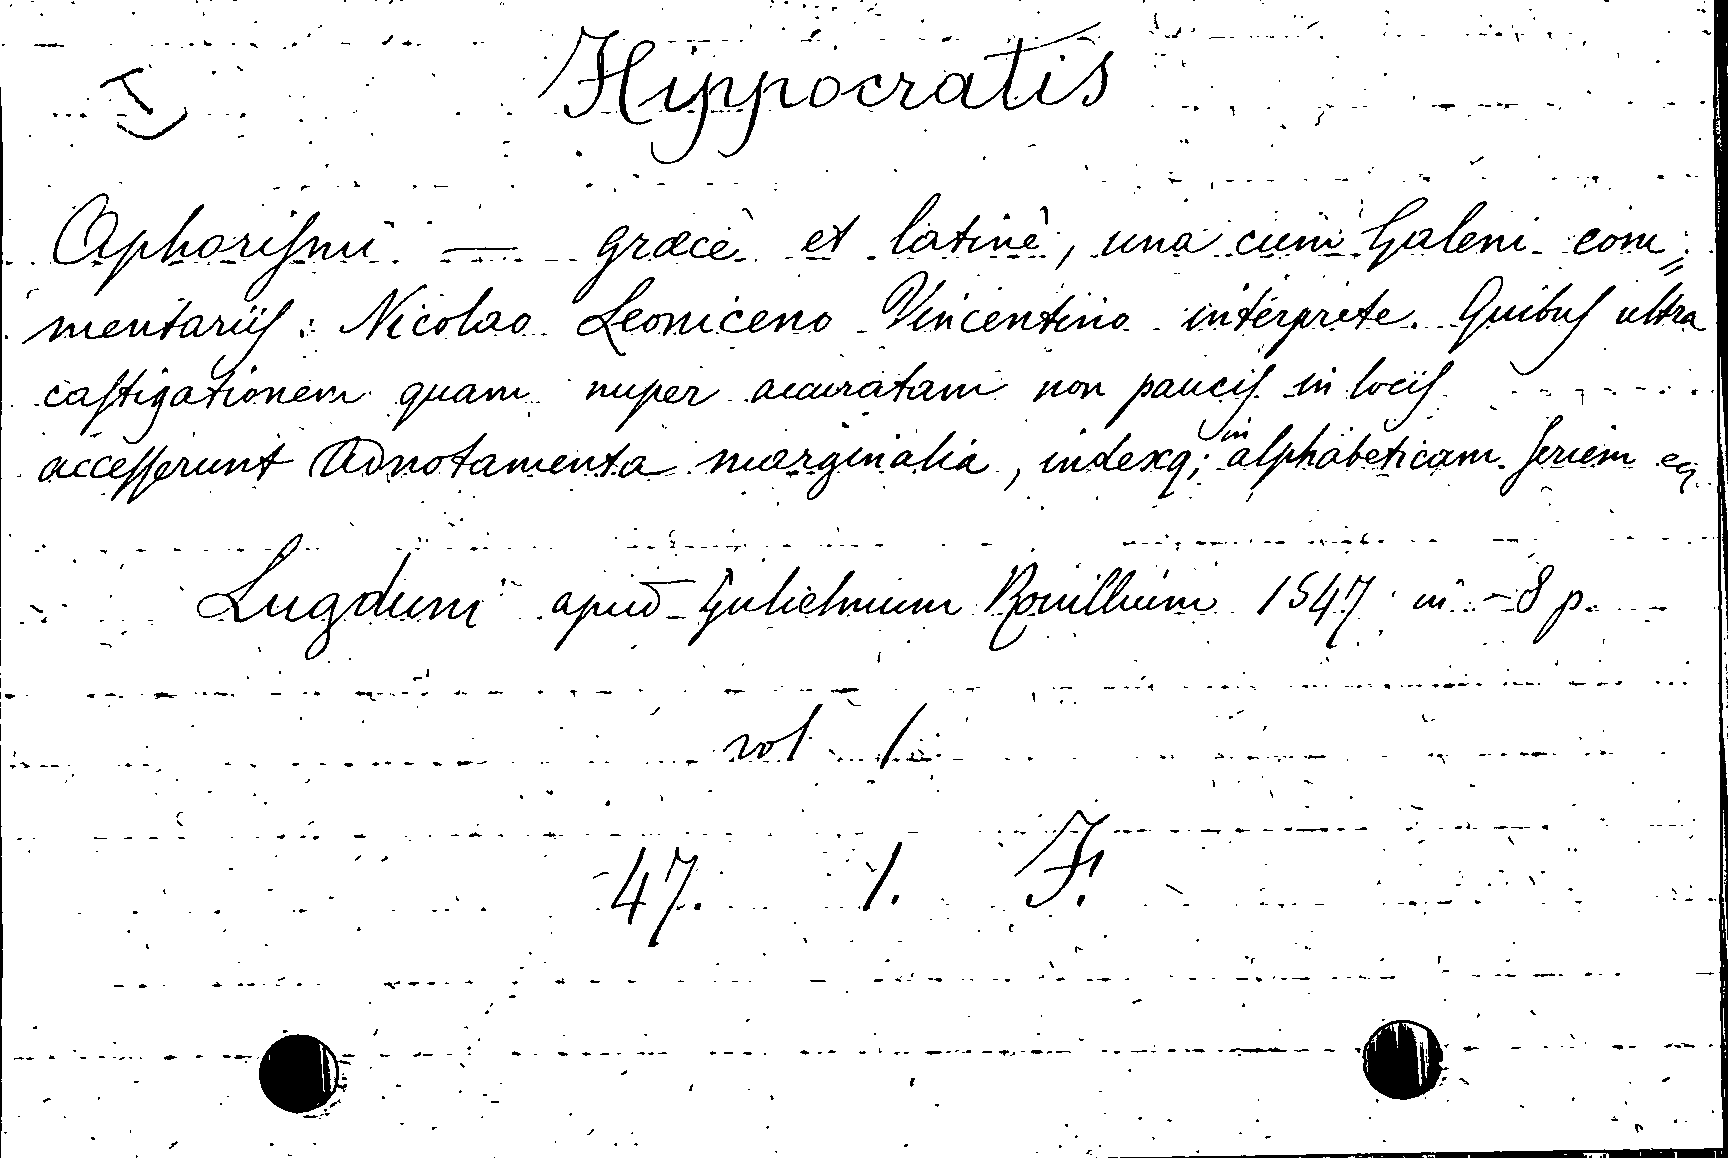 Hippocratis
Aphorismi — græcè et latinè, una cum Galeni com=
mentariis: Nicolao Leoniceno Vincentino interprete. Quibus ultra
castigationem quam nuper accuratam non paucis in locis
accesserunt Adnotamenta marginalia, indexq; in alphabeticam seriem
Lugduni apud Gulielmum Rouillium 1547 in-8 p.
vol 1.
47. 1. F.